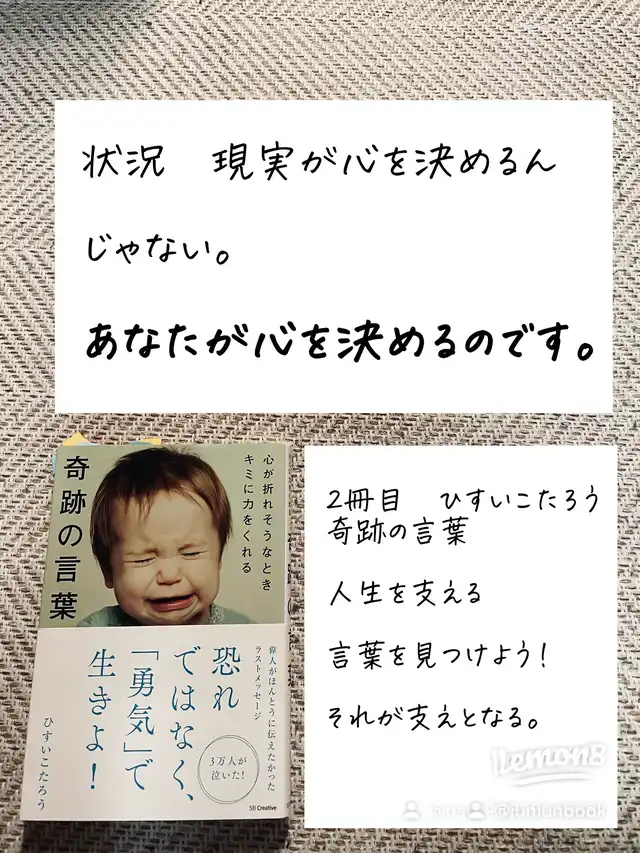 状況　現実が心を決めるん
じゃない。
あなたが心を決めるのです。
心が折れそうなとき
キミに力をくれる
奇跡の言葉
偉人がほんとうに伝えたかった
ラストメッセージ
恐れ
ではなく、
「勇気」で
生きよ！
3万人が
泣いた！
ひすいこたろう
SB Creative
2冊目　ひすいこたろう
奇跡の言葉
人生を支える
言葉を見つけよう！
それが支えとなる。
Lemon8